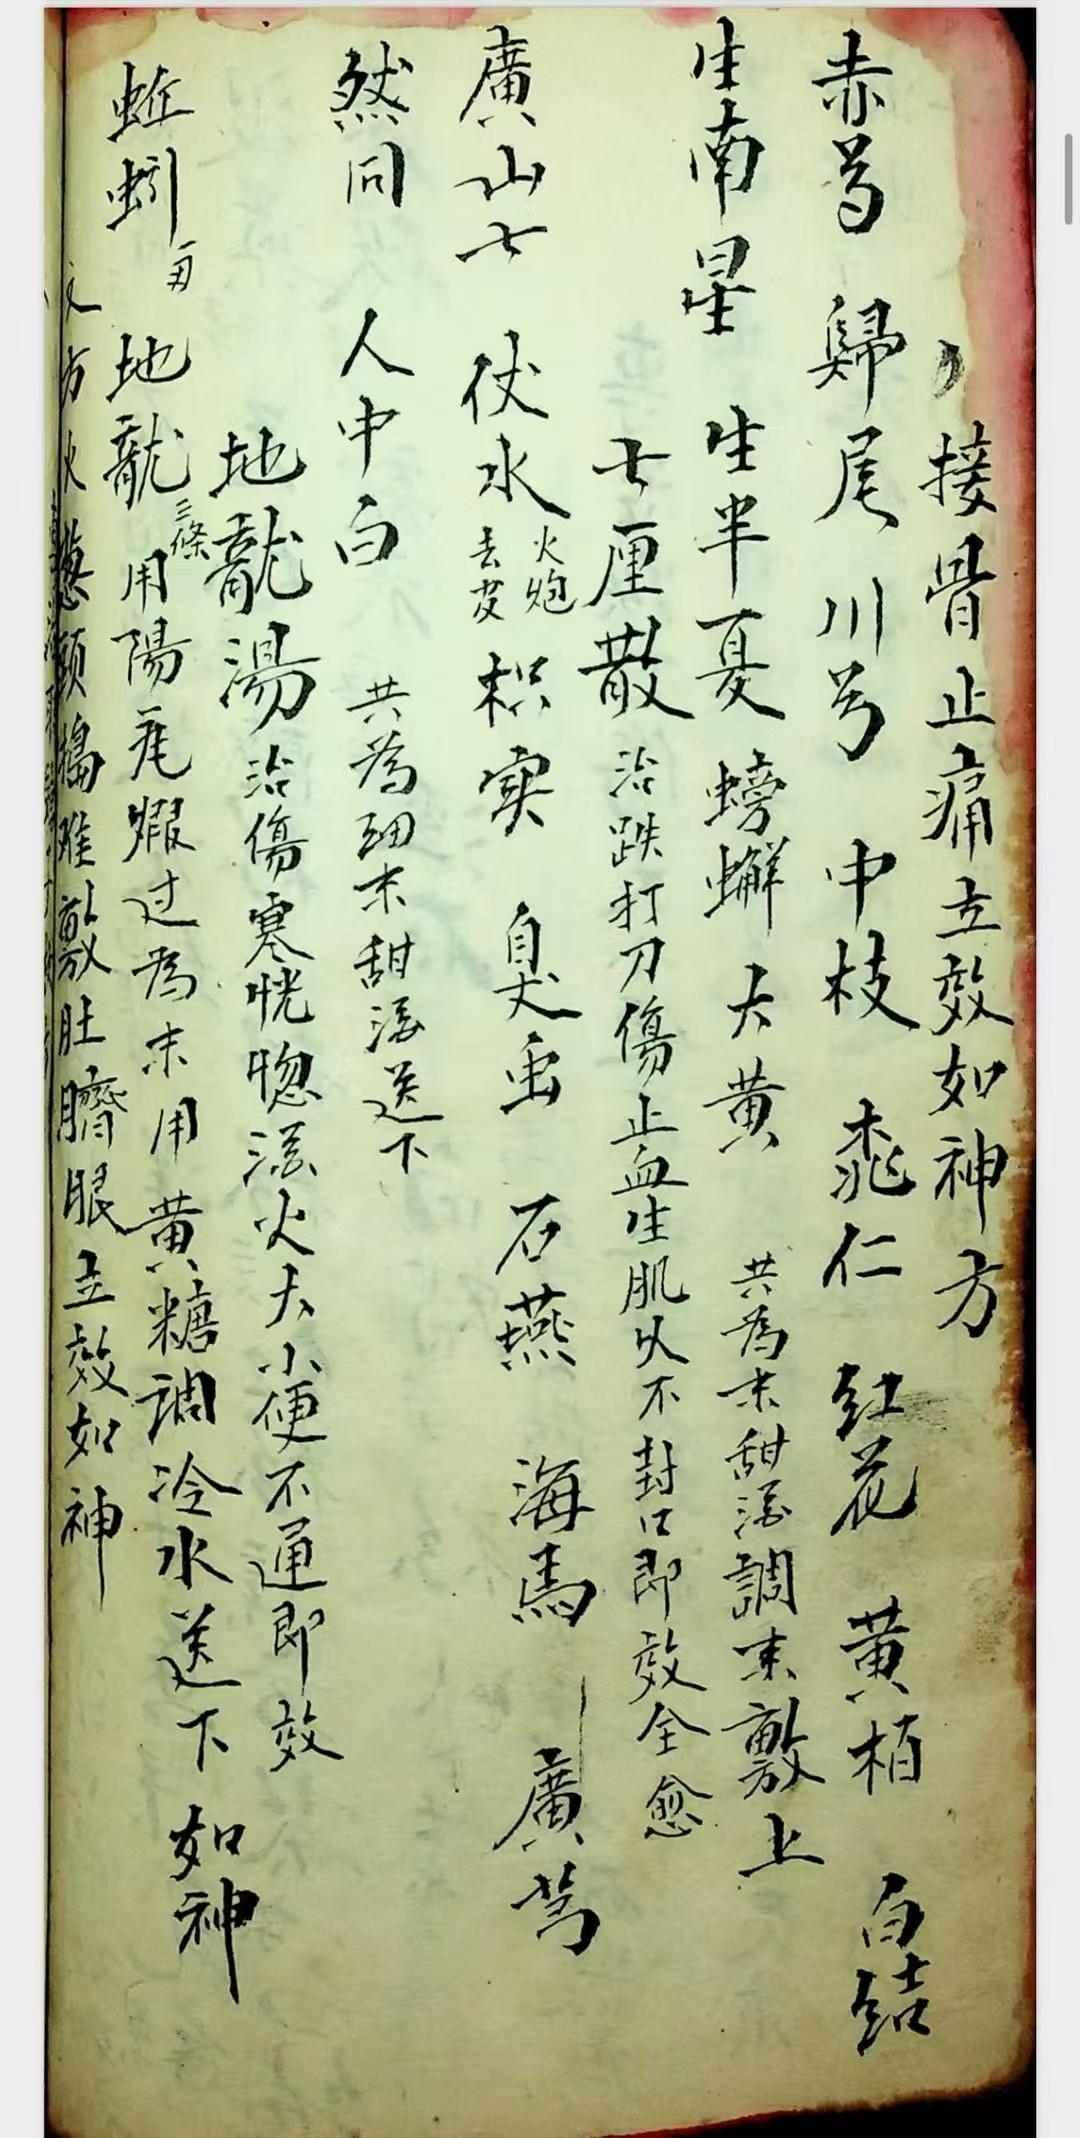 接骨止痛立效如神方
赤芍 歸尾 川芎 中枝 桃仁 紅花 黄柏 白結
生南星 生半夏 螃蠏 大黄 共為末甜酒調末敷上
七厘散 治跌打刀傷止血生肌久不封口即效全愈
廣山七 伏水 火炮去皮 枳实 自犬虫 石燕 海馬 廣芎
然同 人中白 共為細末甜酒送下
地龍湯 治傷寒恍惚 火大小便不通即效
蚯蚓 地龍 三條 用陽瓦煆过為末用黄糖調冷水送下 如神
又方火葱頭搗 敷肚臍眼立效如神